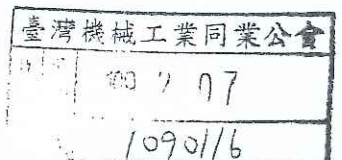 臺灣機械工業同業公會
7 07
1090116